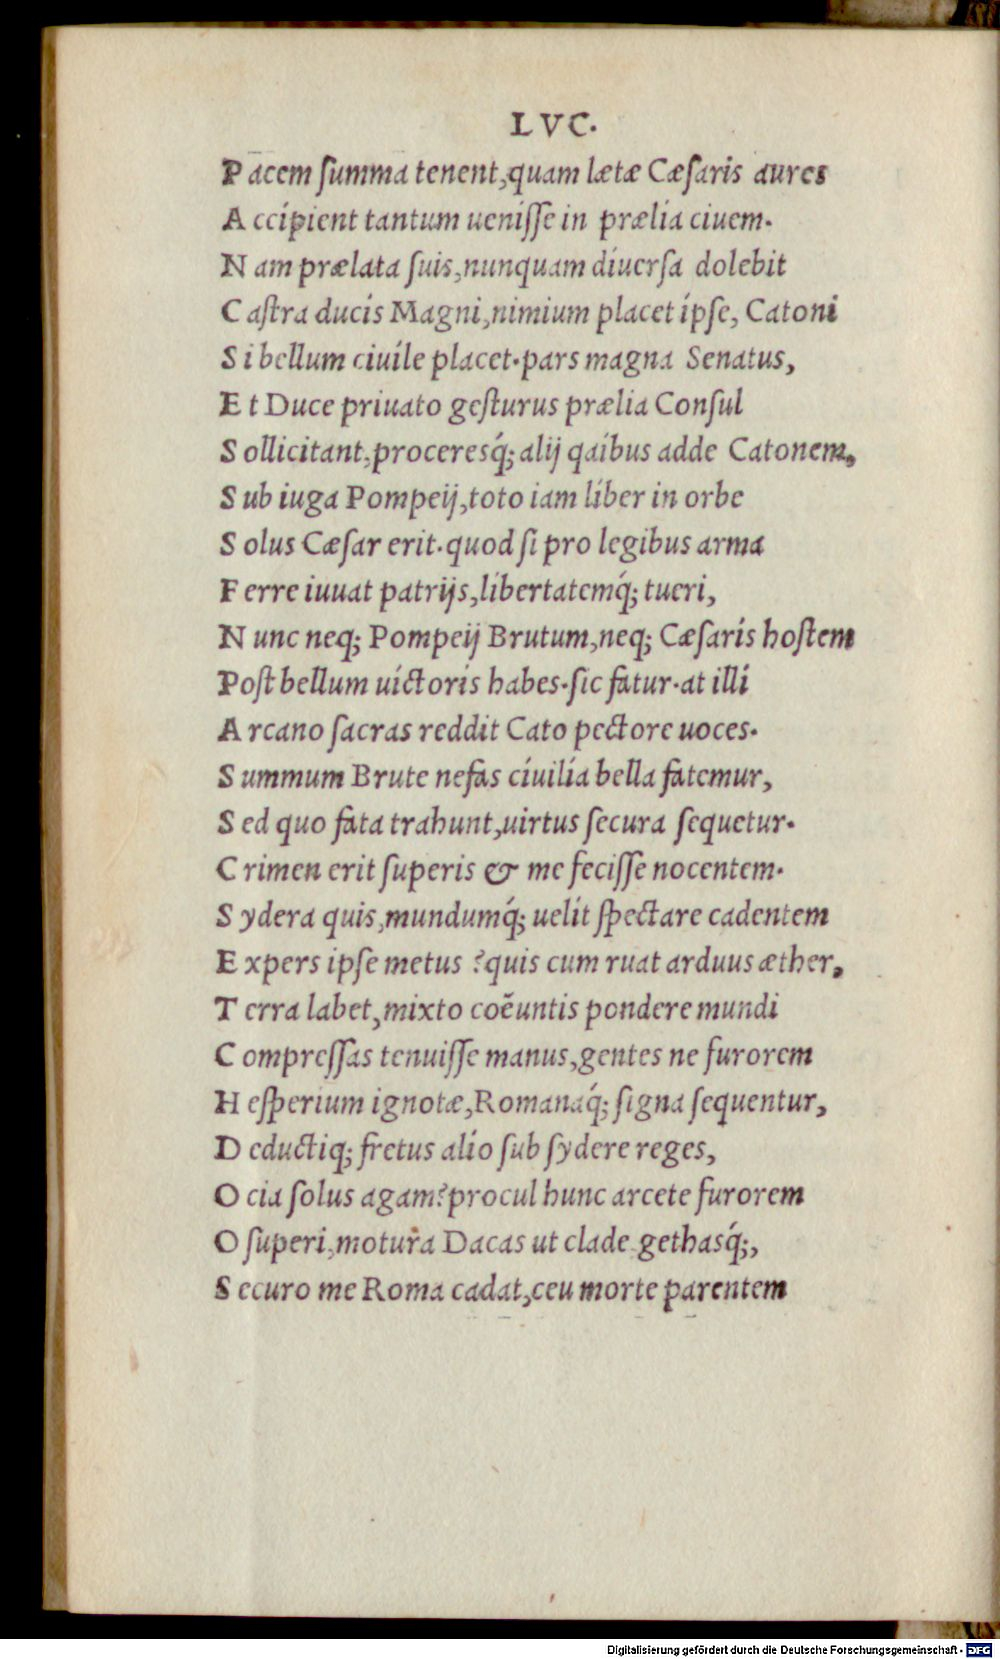 LVC.
P acem ſumma tenent,quam lætæ Cæſaris aures
A ccipient tantum ueniſſe in prælia ciuem.
N am prælata ſuis,nunquam diuerſa dolebit
C aſtra ducis Magni,nimium placet ipſe, Catoni
S i bellum ciuile placet.pars magna Senatus,
E t Duce priuato geſturus prælia Conſul
S ollicitant,proceresq́; alij qaibus adde Catonem,
S ub iuga Pompeij,toto iam liber in orbe
S olus Cæſar erit.quod ſi pro legibus arma
F erre iuuat patrijs,libertatemq́; tueri,
N unc neq; Pompeij Brutum,neq; Cæſaris hoſtem
Poſt bellum uictoris habes.ſic fatur.at illi
A rcano ſacras reddit Cato pectore uoces.
S ummum Brute nefas ciuilia bella fatemur,
S ed quo fata trahunt,uirtus ſecura ſequetur.
C rimen erit ſuperis & me feciſſe nocentem.
S ydera quis,mundumq́; uelit ſpectare cadentem
E xpers ipſe metus ?quis cum ruat arduus æther,
T erra labet,mixto coëuntis pondere mundi
C ompreſſas tenuiſſe manus,gentes ne furorem
H eſperium ignotæ,Romanaq́; ſigna ſequentur,
D eductiq; fretus alio ſub ſydere reges,
O cia ſolus agam?procul hunc arcete furorem
O ſuperi,motura Dacas ut clade gethasq́;,
S ecuro me Roma cadat,ceu morte parentem
Digitalisierung gefördert durch die Deutsche Forschungsgemeinschaft - DFG